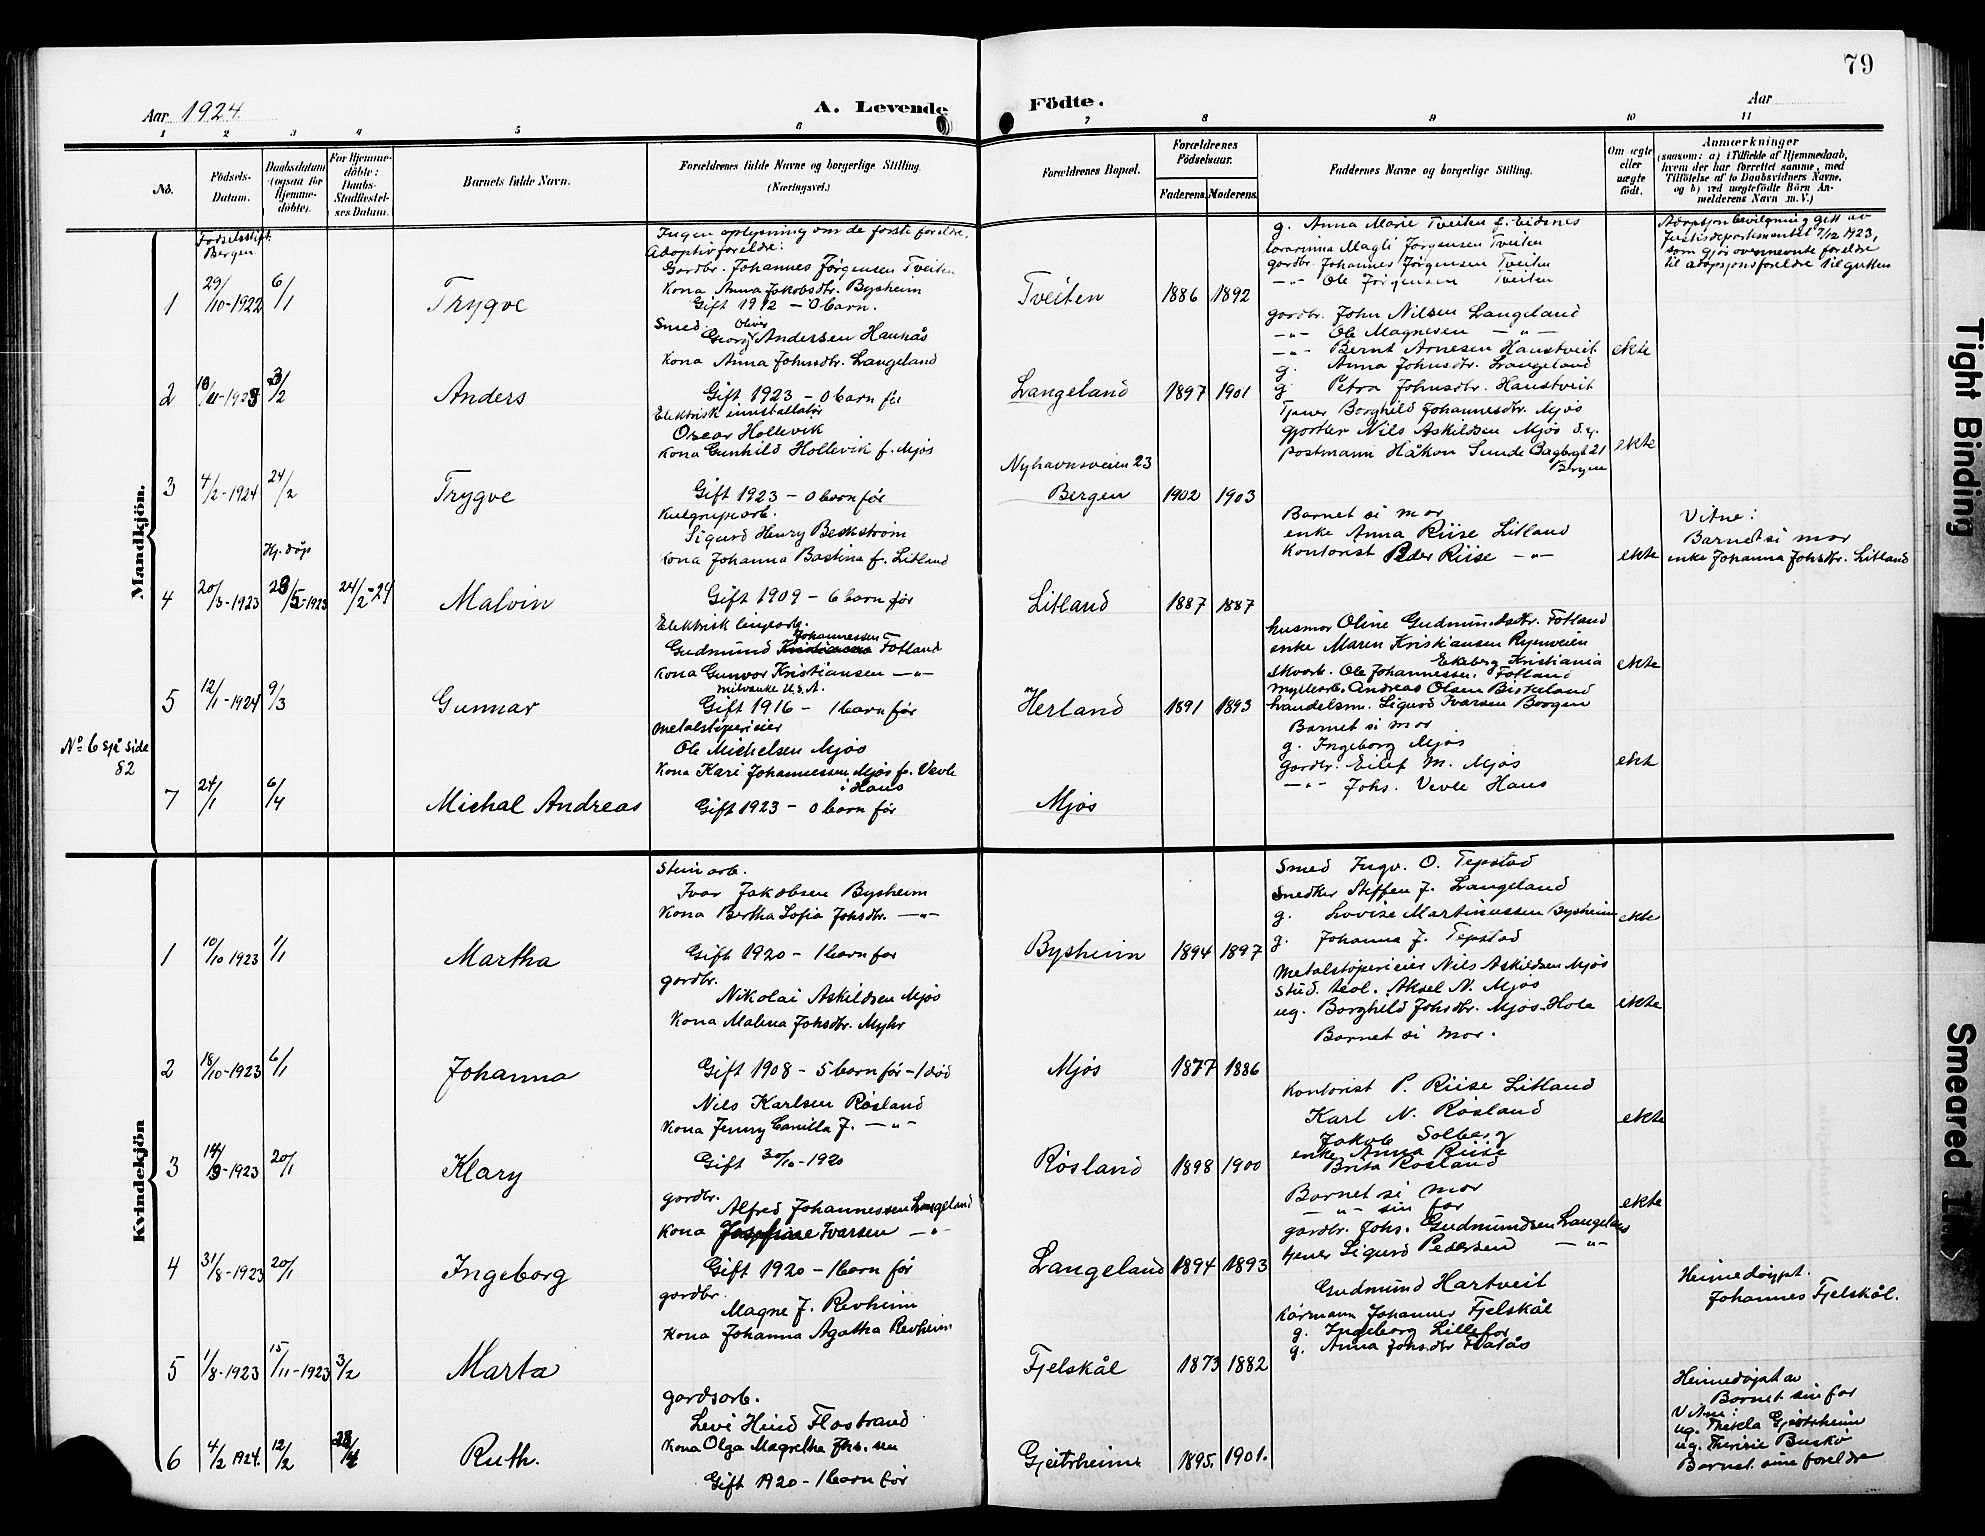 79
Aar 1924.
A. Levende Födte.
Aar
1 2 3 4 5 6 7 8 9 10 11
No.
Födsels-
Datum.
Daabsdatum
(ogsaa for
Hjemme-
döbte).
For Hjemme-
döbte:
Daabs-
Stadfæstel-
ses Datum.
Barnets fulde Navn.
Forældrenes fulde Navne og borgerlige Stilling.
(Næringsvei.)
Forældrenes Bopæl.
Forældrenes
Födselsaar.
Faderens. Moderens.
Faddernes Navne og borgerlige Stilling.
Om ægte
eller
uægte
födt.
Anmærkninger
(saasom: a) i Tilfælde af Hjemmedaab,
hvem der har forrettet samme, med
Tilföielse af to Daabsvidners Navne,
og b) ved uægtefödte Börn An-
melderens Navn m. V.)
Mandkjön.
Fødselsstift.
Bergen
1
29/10-1922
6/1
Trygve
Ingen oplysning om de første foreldre.
Adoptivforeldre:
Gardbr. Johannes Jørgensen Tveiten
Kona Anna Jakobsdtr. Bysheim
Gift 1912 - 0 barn.
Tveiten
1886 1892
g. Anna Marie Tveiten f. Eidsnes
lærarinna Magli Jørgensen Tveiten
gardbr. Johannes Jørgensen Tveiten
-"- Ole Jørgensen Tveiten
Adopsjonbevilgning gitt av
Justisdepartementet 7/12 1923,
som gjør overnevnte foreldre
til adopsjonsforeldre til gutten
2
Anders
Smed
Oliver
Georg Andersen Haukås
Kona Anna Johnsdtr. Langeland
Gift 1923 - 0 barn før
Langeland
1897 1901
gardbr. John Nilsen Langeland
-"- Ole Magnesen -"-
-"- Bernt Arnesen Haustveit
g. Anna Johnsdtr. Langeland
g. Petra Johnsdtr. Haustveit
ekte
3
4/2-1924
24/2
Trygve
Elektrisk innstallatør
Oscar Hollevik
Kona Gunhild Hollevik f. Mjøs
Gift 1923 - 0 barn før
Nyhavnsveien 23
Bergen
1902 1903
Tjener Borghild Johannesdtr. Mjøs
gjørtler Nils Askildsen Mjøs d.y.
postmann Håkon Sunde
Bergen
ekte
4
Hj. døp
20/3-1923
28/5-1923
24/2-24
Malvin
Kulgruvearb.
Sigurd Henry Beckstrøm
Kona Johanna Bastina f. Litland
Gift 1909 - 6 barn før
Litland
1887 1887
Barnet si mor
enke Anna Riise Litland
Kontorist Peder Riise -"-
ekte
Vitne:
Barnet si mor
enke Johanna Johsdtr. Litland
5
12/1-1924
9/3
Gunnar
Elektrisk linjearb.
Johannessen
Gudmund Kristiansen Fotland
Kona Gunvor Kristiansen -"-
Milwauke U.S.A.
Gift 1916 - 1 barn før
Herland
1891 1893
husmor Oline Gudmundsdtr. Fotland
enke Maren Kristiansen Ryenveien
Ekeberg Kristiania
Ole Johannessen. Fotland
Andreas Olsen Birkeland
handelsm. Sigurd IvarsenBorgen
ekte
No 6 sjå side
82
7
24/1
6/4
Michal Andreas
Metalstøperieier
Ole Michelsen Mjøs
Kona Kari Johannessen Mjøs f. Vevle
i Haus
Gift 1923 - 0 barn før
Mjøs
Barnet si mor
g. Ingeborg Mjøs
gardbr. Eilef M. Mjøs
-"- Johs. Vevle Haus
ekt
Kvindekjön
1
10/10 1923
1/1
Martha
Steinarb.
Ivar Jakobsen Bysheim
Kona Bertha Sofia Johsdtr. -"-
Gift 1920 - 1 barn før
Bysheim
1894 1897
Smed Ingv. O. Tepstad
Snedker Steffen J. Langeland
g. Lovise Martinussen Bysheim
g. Johanna J. Tepstad
ekte
2
18/10-1923
6/1
Johanna
gardbr.
Nikolai Askildsen Mjøs
Kona Malena Johsdtr. Myhr
Gift 1908 - 5 barn før - 1 død
Mjøs
1877 1886
Metalstøperieier Nils Askildsen Mjøs
stud. teol. Aksel N. Mjøs
ug. Borghild Johsdtr. Mjøs-Hole
Barnet si mor.
ekte
3
20/1
Klary
Nils Karlsen Røsland
Kona Jenny Camilla J. -"-
Gift 30/10-1920
Røsland
1898 1900
Kontorist P. Riise Litland
Karl N. Røsland
Jakob Solberg
enke Anna Riise
Brita Røsland
ekte
4
31/8-1923
20/1
Ingeborg
gardbr.
Alfred Johannessen Langeland
Kona Josefine Ivarsen -"-
Gift 1920 - 1 barn før
Langeland
1894 1893
Barnet si mor
-"- sin far
gardbr. Johs. Gudmundsen Langeland
tjener Sigurd Pedersen -"-
ekte
5
1/8-1923
15/11-1923
3/2
Marta
gardbr.
Magne J. Revheim
Kona Johanna Agatha Revheim
Fjelskål
1873 1882
Gudmund Hartveit
Johannes Fjelskål
g. Ingeborg Lillefor
g. Anna Johsdtr Flatås
Heimedøypt.
Johannes Fjelskål.
6
4/2 1924.
12/2
Ruth.
gardsarb.
Levi Hind Flostrand
Kona Olga Magretha Johs.sen
Gift 1920 - 1 barn før
Gjeitrheim
1895. 1901.
Heimedøypt av
Barnet sin far
Vitne:
ug. Thekla Gjeitrheim
ug. Therese Buskø
Barnet sine foreldre
Tight Binding
Smeared Ink